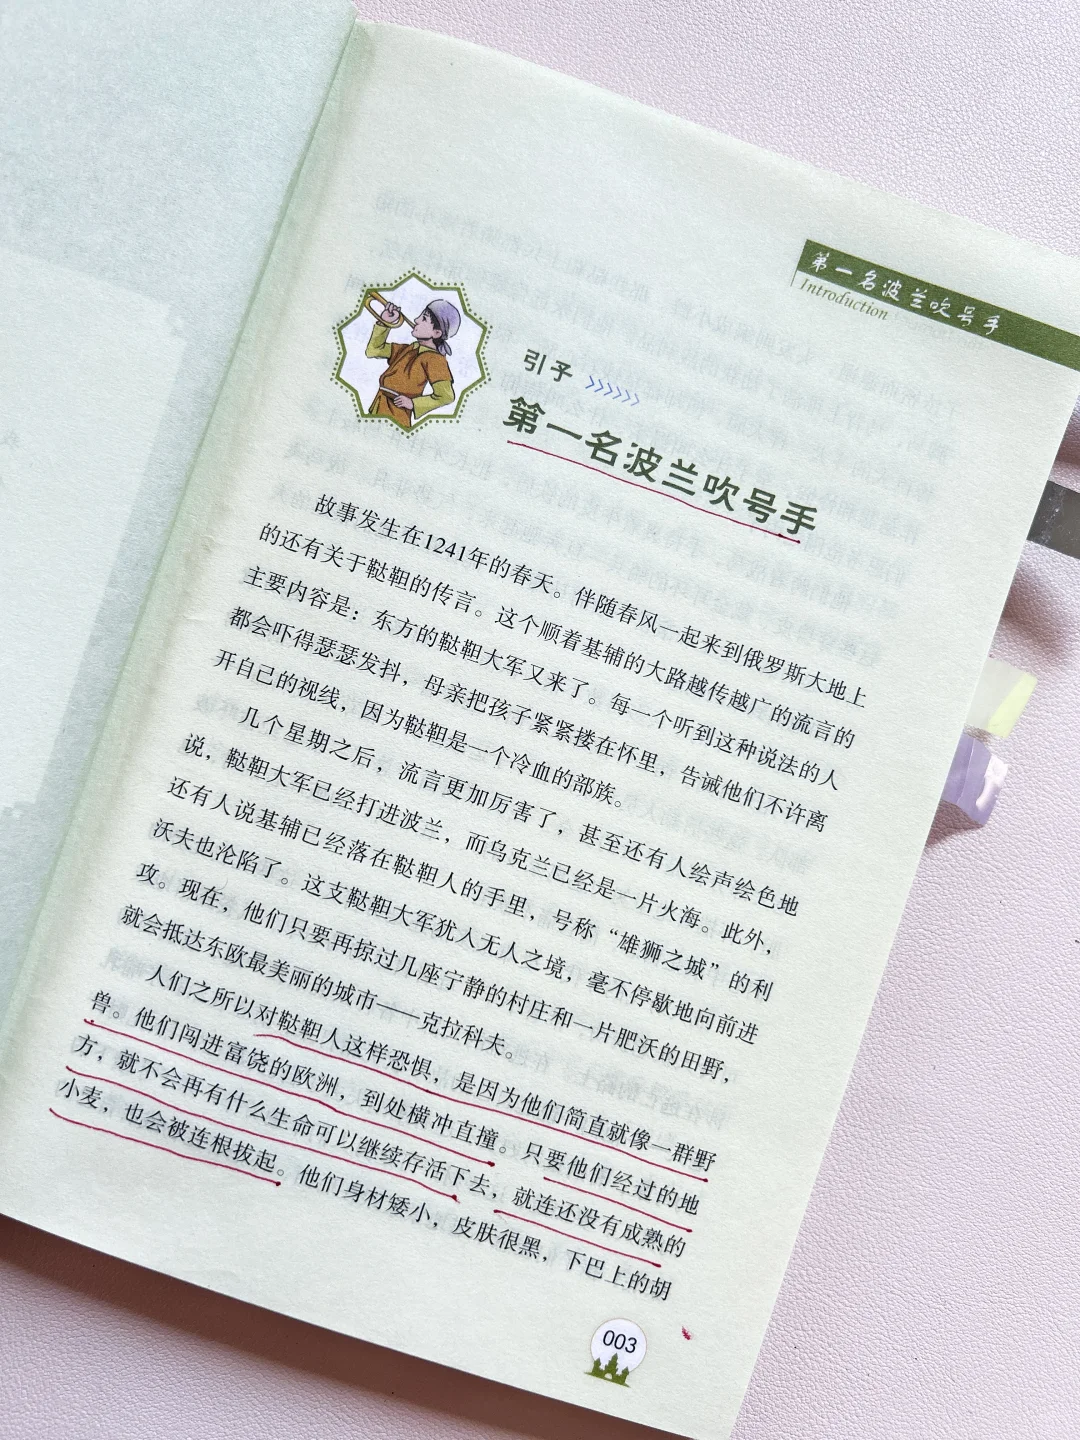 第一名波兰吹号手
Introduction
引子
第一名波兰吹号手
故事发生在1241年的春天。伴随春风一起来到俄罗斯大地上
的还有关于鞑靼的传言。这个顺着基辅的大路越传越广的流言的
主要内容是：东方的鞑靼大军又来了。每一个听到这种说法的人
都会吓得瑟瑟发抖，母亲把孩子紧紧搂在怀里，告诫他们不许离
开自己的视线，因为鞑靼是一个冷血的部族。
几个星期之后，流言更加厉害了，甚至还有人绘声绘色地
说，鞑靼大军已经打进波兰，而乌克兰已经是一片火海。此外，
还有人说基辅已经落在鞑靼人的手里，号称“雄狮之城”的利
沃夫也沦陷了。这支鞑靼大军犹入无人之境，毫不停歇地向前进
攻。现在，他们只要再掠过几座宁静的村庄和一片肥沃的田野，
就会抵达东欧最美丽的城市——克拉科夫。
人们之所以对鞑靼人这样恐惧，是因为他们简直就像一群野
兽。他们闯进富饶的欧洲，到处横冲直撞。只要他们经过的地
方，就不会再有什么生命可以继续存活下去，就连还没有成熟的
小麦，也会被连根拔起。他们身材矮小，皮肤很黑，下巴上的胡
003